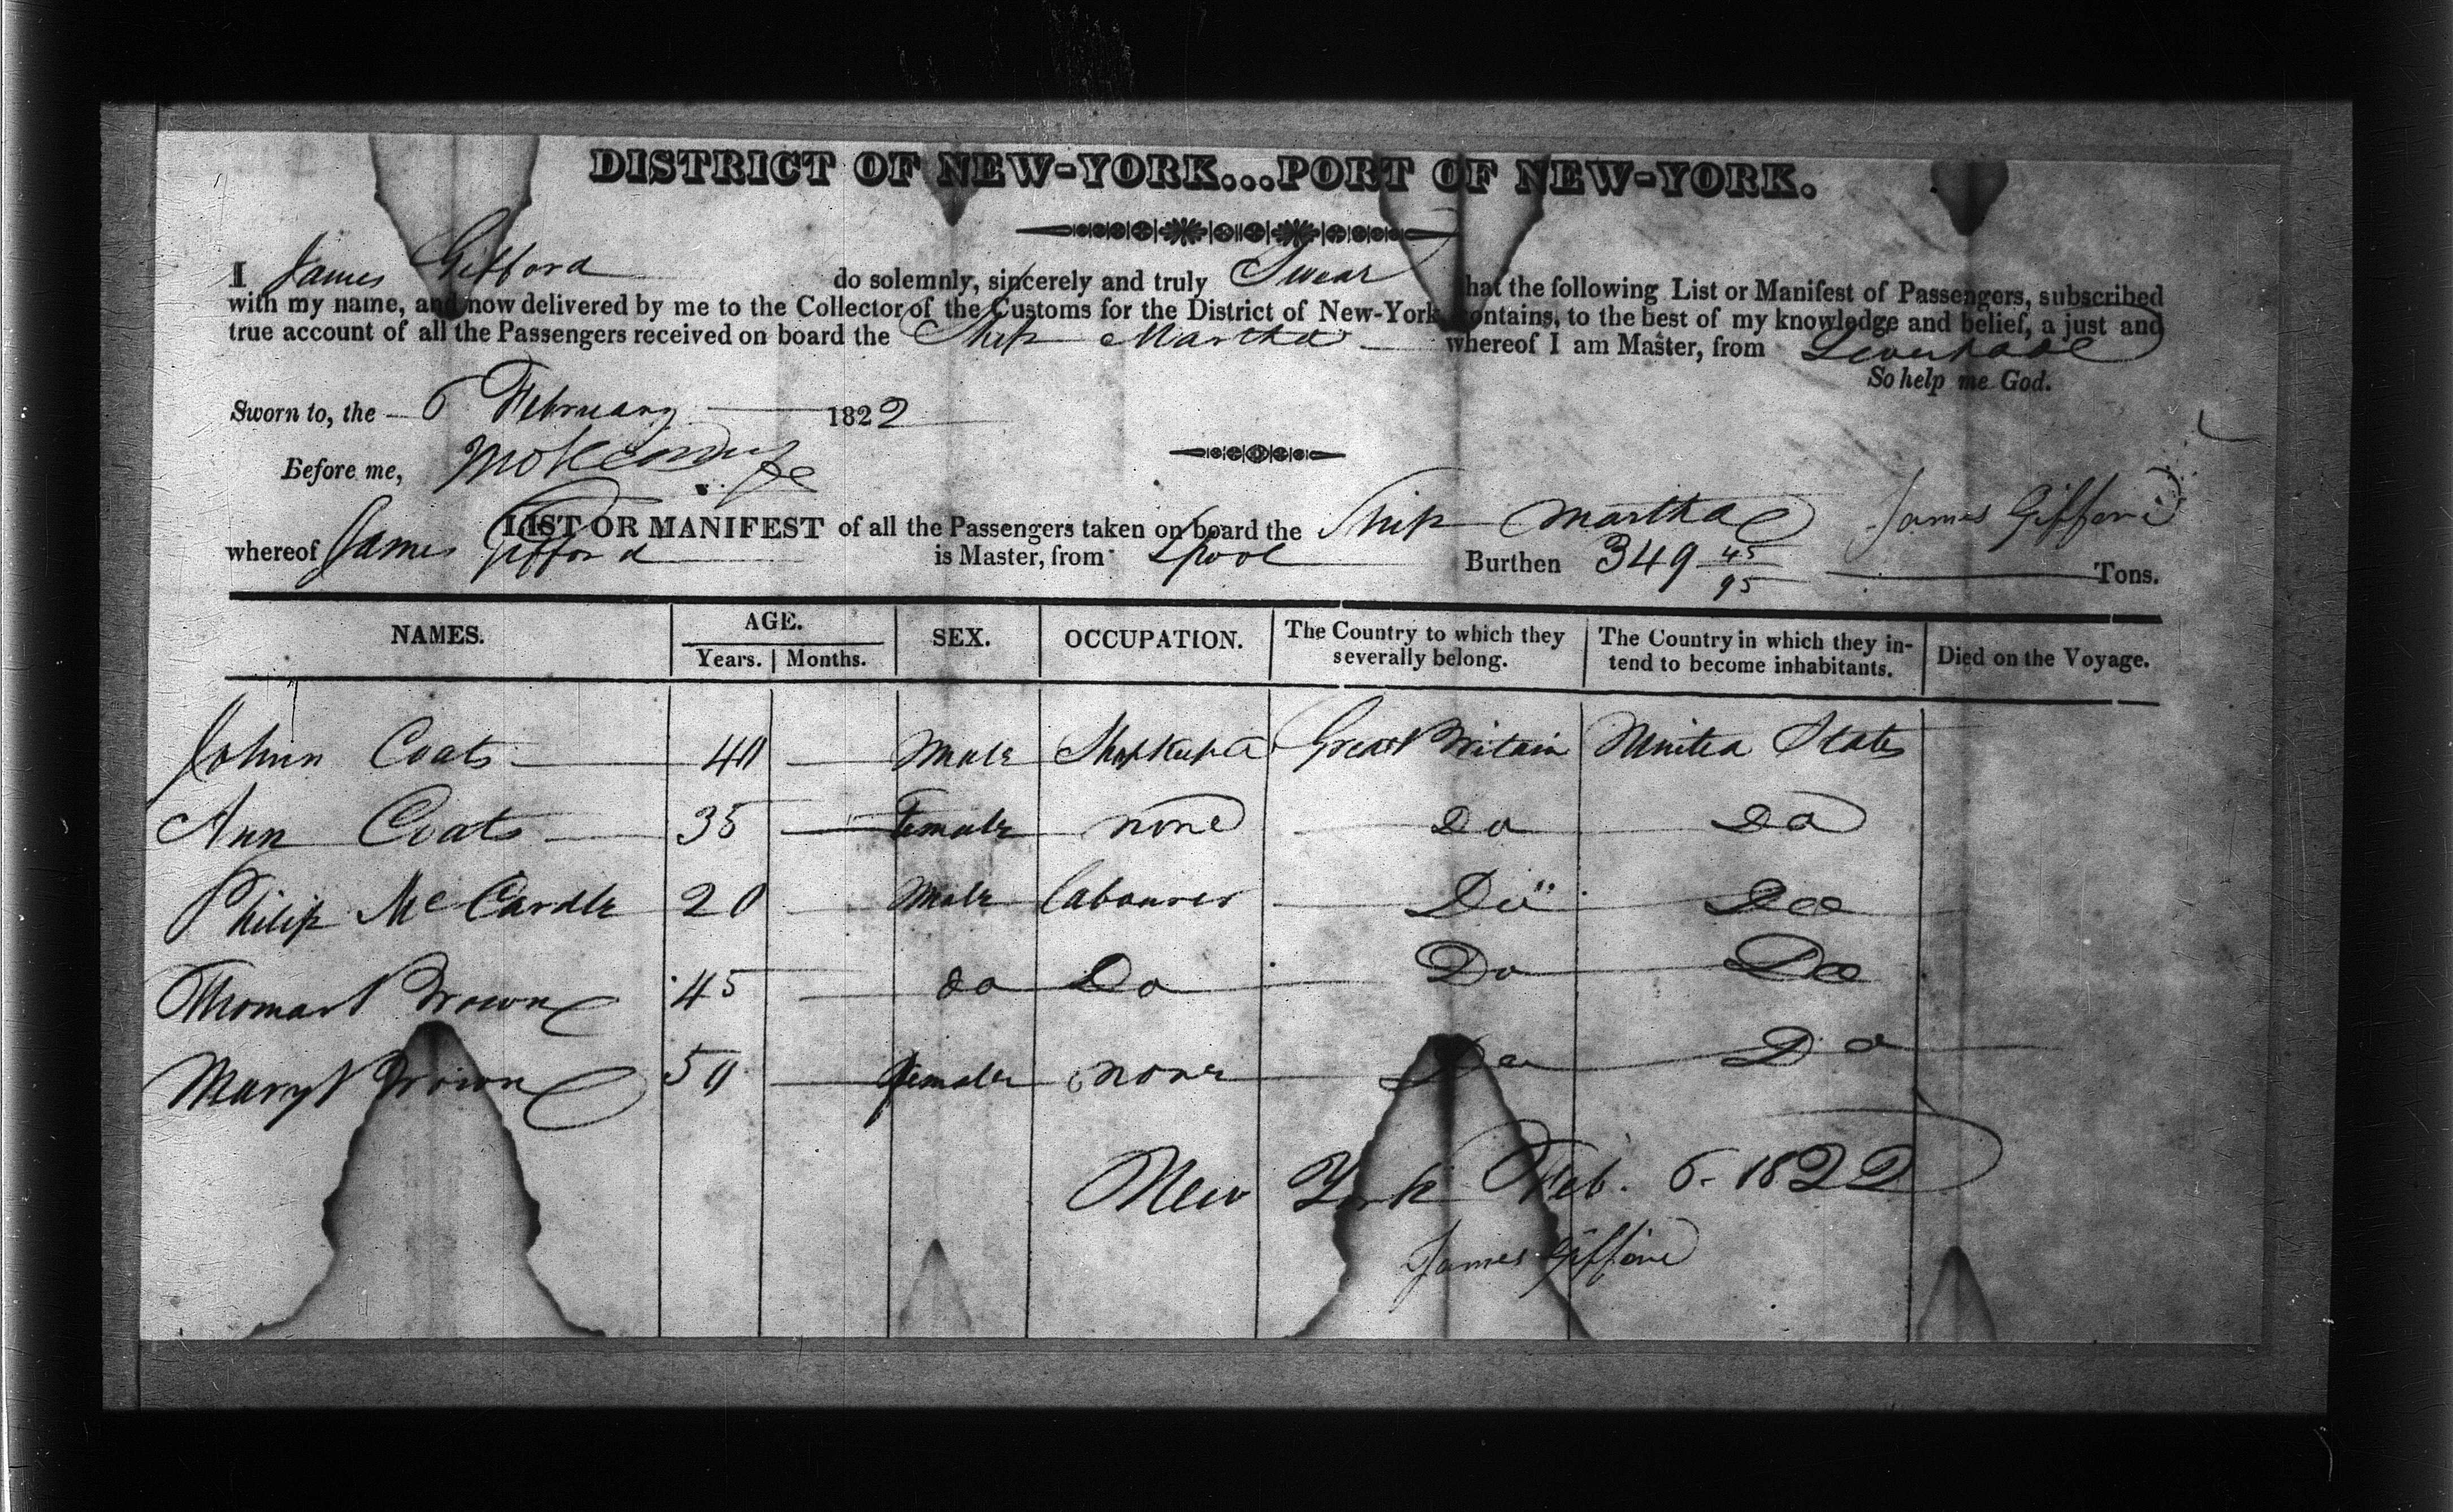 DISTRICT OF NEW-YORK...PORT OF NEW-YORK.
I James Gifford do solemnly, sincerely and truly Swear that the following List or Manifest of Passengers, subscribed
with my name, and now delivered by me to the Collector of the Customs for the District of New-York, contains, to the best of my knowledge and belief, a just and
true account of all the Passengers received on board the Ship Martha whereof I am Master, from Liverpool
So help me God.
Sworn to, the 6 February 1822
Before me,
James Gifford
LIST OR MANIFEST of all the Passengers taken on board the Ship Martha
whereof James Gifford is Master, from Lpool Burthen 349 45/95 Tons.
NAMES. AGE. Years. Months. SEX. OCCUPATION. The Country to which they severally belong. The Country in which they intend to become inhabitants. Died on the Voyage.
John Coats 40 Male Shopkeeper Great Britain United States
Ann Coats 35 Female none Do Do
Philip McCardle 20 Male labourer Do Do
Thomas Brown 45 do Do Do Do
Mary Brown 50 female none Do Do
New York Feb. 6. 1822
James Gifford